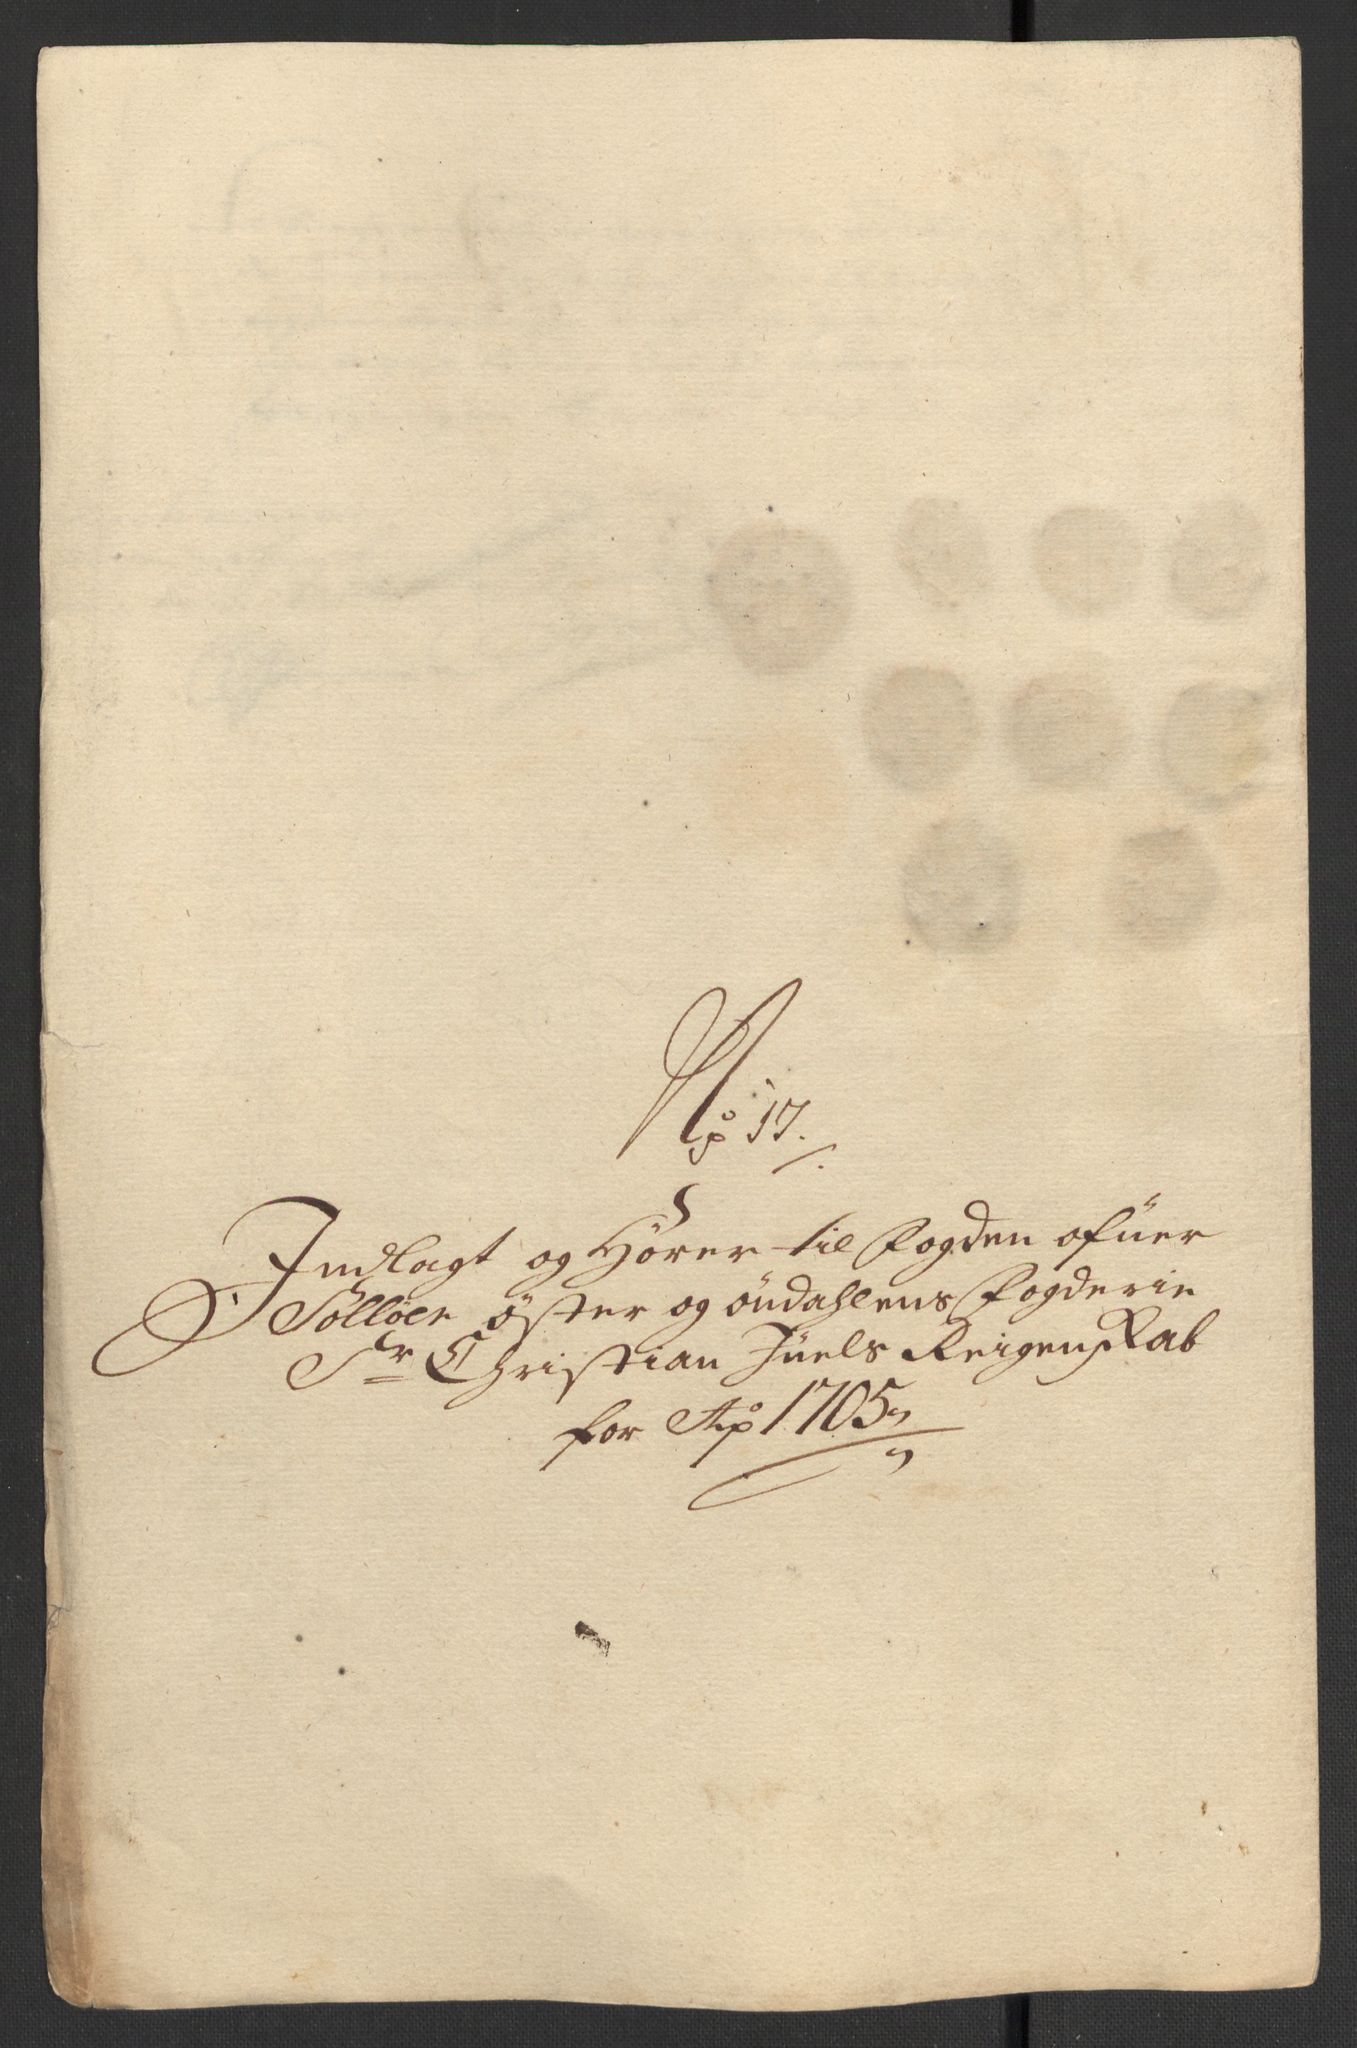 No 17.
Indlagt og Hörer til Fogden ofuer
Sollöer öster og öndahlens Fogderie
Sr Christian Juels Reigenskab
for Ao 1705